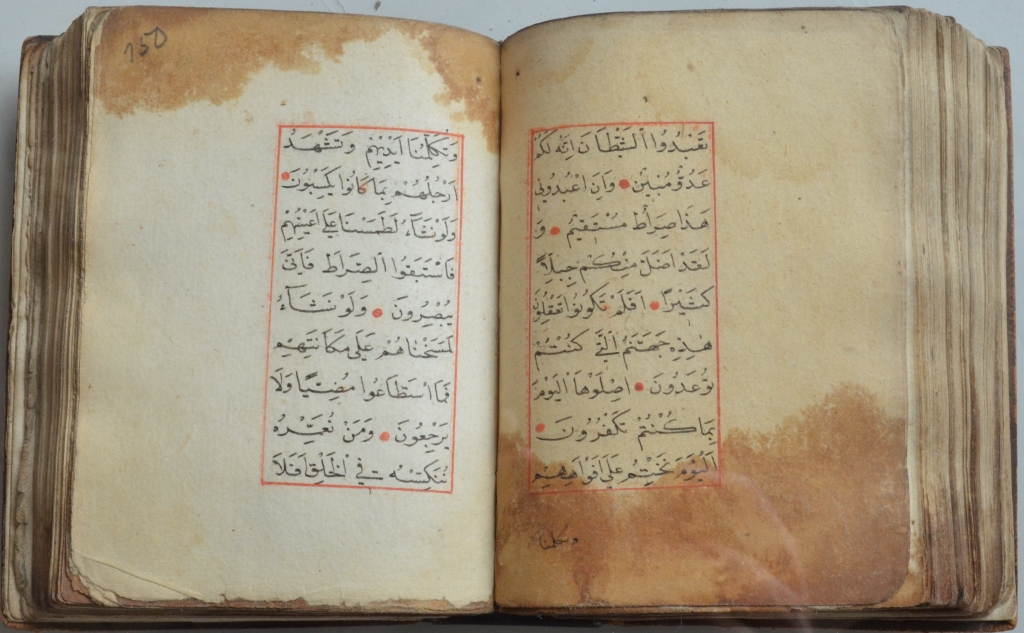 تَعْبُدُوا الشَّيْطَانَ اِنَّهُ لَكُمْ
عَدُوٌّ مُبِينٌ وَاَنِ اعْبُدُونِي
هَذَا صِرَاطٌ مُسْتَقِيمٌ وَ
لَقَدْ اَضَلَّ مِنْكُمْ جِبِلًّا
كَثِيرًا اَفَلَمْ تَكُونُوا تَعْقِلُونَ
هَذِهِ جَهَنَّمُ الَّتِي كُنْتُمْ
تُوعَدُونَ اِصْلَوْهَا الْيَوْمَ
بِمَا كُنْتُمْ تَكْفُرُونَ
اَلْيَوْمَ نَخْتِمُ عَلَى اَفْوَاهِهِمْ
وتكلمنا
150
وَتُكَلِّمُنَا اَيْدِيهِمْ وَتَشْهَدُ
اَرْجُلُهُمْ بِمَا كَانُوا يَكْسِبُونَ
وَلَوْ نَشَآءُ لَطَمَسْنَا عَلَى اَعْيُنِهِمْ
فَاسْتَبَقُوا الصِّرَاطَ فَاَنَّى
يُبْصِرُونَ وَلَوْ نَشَآءُ
لَمَسَخْنَاهُمْ عَلَى مَكَانَتِهِمْ
فَمَا اسْتَطَاعُوا مُضِيًّا وَلَا
يَرْجِعُونَ وَمَنْ نُعَمِّرْهُ
نُنَكِّسْهُ فِي الْخَلْقِ اَفَلَا